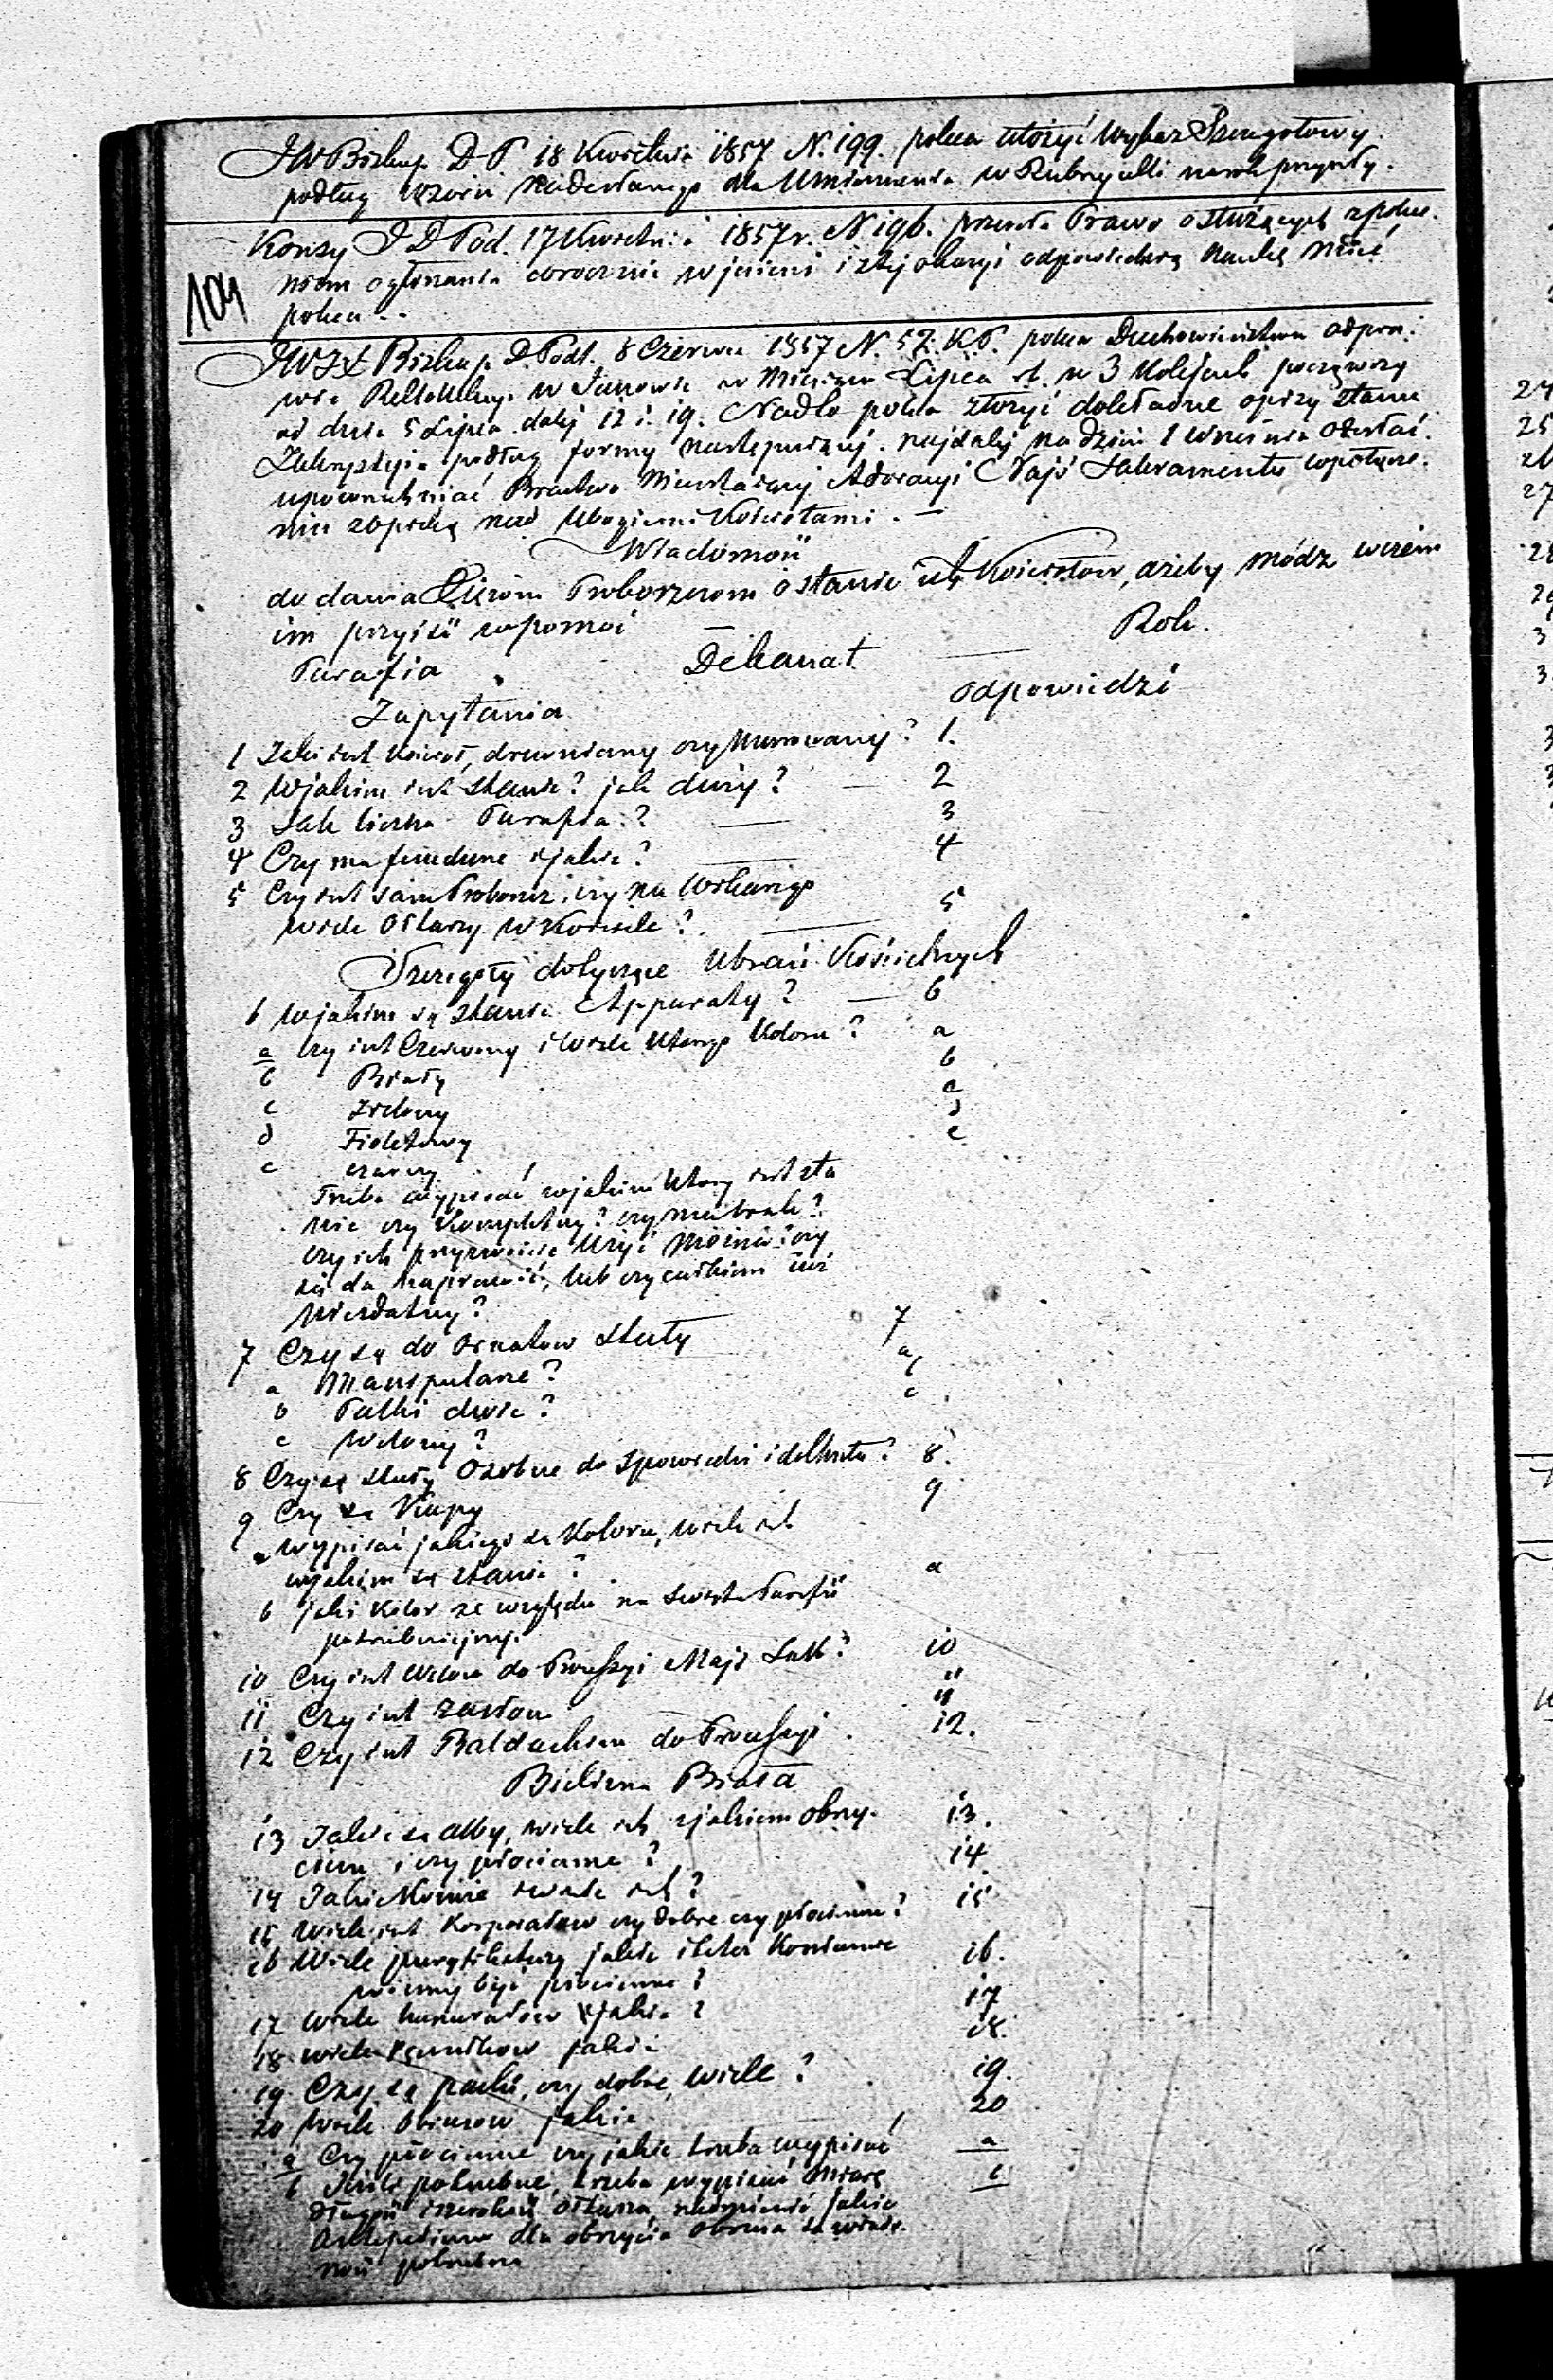 JW Biskup D P 18 Kwietnia 1857 N. 199. poleca ułożyć Wykaz Szczegółowy
podług wzoru nadesłanego dla Umieszczenia w Rubrycelli na rok przyszły.
Konsy J D Pod. 17 Kwietnia 1857 r. N 196. przesyła Prawo o służących z polece-
niem ogłoszenia corocznie w jesieni i z tej okazyi odpowiednią naukę mieć
104
poleca --
JWJX Biskup D. Podl. 8 Czerwca 1857 N. 52. K.P. poleca Duchowieństwu odpra-
wić Rekollekcye w Janowie w Miesiącu Lipcu rb. w 3 Kolejach począwszy
od dnia 5 Lipca dalej 12 i 19. Nadto poleca złożyć dokładne opisy stanu
Zakrystyi podług formy następującej. najdalej na dzień 1 Września odesłać.
upowszechniać Bractwo Nieustającej Adoracyi Najś Sakramentu w połącze-
niu z opieką nad Ubogiemi Kościołami. —
Wiadomość
do dania Xiężom Proboszczom o stanie ich Kościołów, ażeby módz wcześn
im przyjść w pomoc — Rok.
Parafia Dekanat —
Zapytania odpowiedzi
1 Jaki jest Kościoł, drewniany czy Murowany? 1.
2 W jakim jest stanie? jak duży? — 2
3 Jak liczna Parafia? — 3
4 Czy ma fundusze i jakie? — 4
5 Czy jest sam Proboszcz, czy ma Wikarego
wiele Ołtarzy w Kościele? — 5
Szczegoły dotyczące Ubrań Kościelnych
6 W jakim są stanie Apparaty? — 6
a czy jest Czerwony i Wiele którego Koloru? a
b Biały b
c Zielony c
d Fioletowy d
e czarny e
Trzeba wypisać w jakim który jest sta
nie czy Kompletny? czy niebrak?
czy ich przyzwoicie Użyć można? czy
się da naprawić, lub czy całkiem już
niezdatny?
7 Czy są do Ornatow Stuły 7
a Manipularze? a
b Palki dwie? b
c Welony? c
8 Czy są stuły Osobne do Spowiedzi i do Chrztu? 8.
9 Czy są Kapy 9
a wypisać jakiego są Koloru, wiele ich
w jakim są stanie? a
b jaki Kolor ze względu na Święta Parafii
potrzebniejszy.
10 Czy jest Welon do Processyi Najś Sakr? 10
11 Czy jest zasłona — 11
12 Czy jest Baldachim do Processyi. 12.
Bielizna Biała
13 Jakie są alby, wiele ich z jakiem obszy-
ciem i czy płócienne? 13.
14 Jakie Komże i wiele ich? 14
15 Wiele jest Korporałow czy dobre czy płócienne? 15
16 Wiele puryfikaterzy jakie i które Koniecznie
powinny być płócienne? 16.
17 Wiele humerałow i jakie? 17
18 wiele ręczników jakie 18.
19 Czy są paski, czy dobre, Wiele? 19.
20 Wiele Obrusow jakie 20
a Czy płócienne czy jakie trzeba wypisać a
b Jeśli potrzebne, trzeba wypisać miarę b
długość i szerokość ołtarza, nadmienić jakie
Antepedium dla obszycia obrusa są wiado-
mość potrzebna